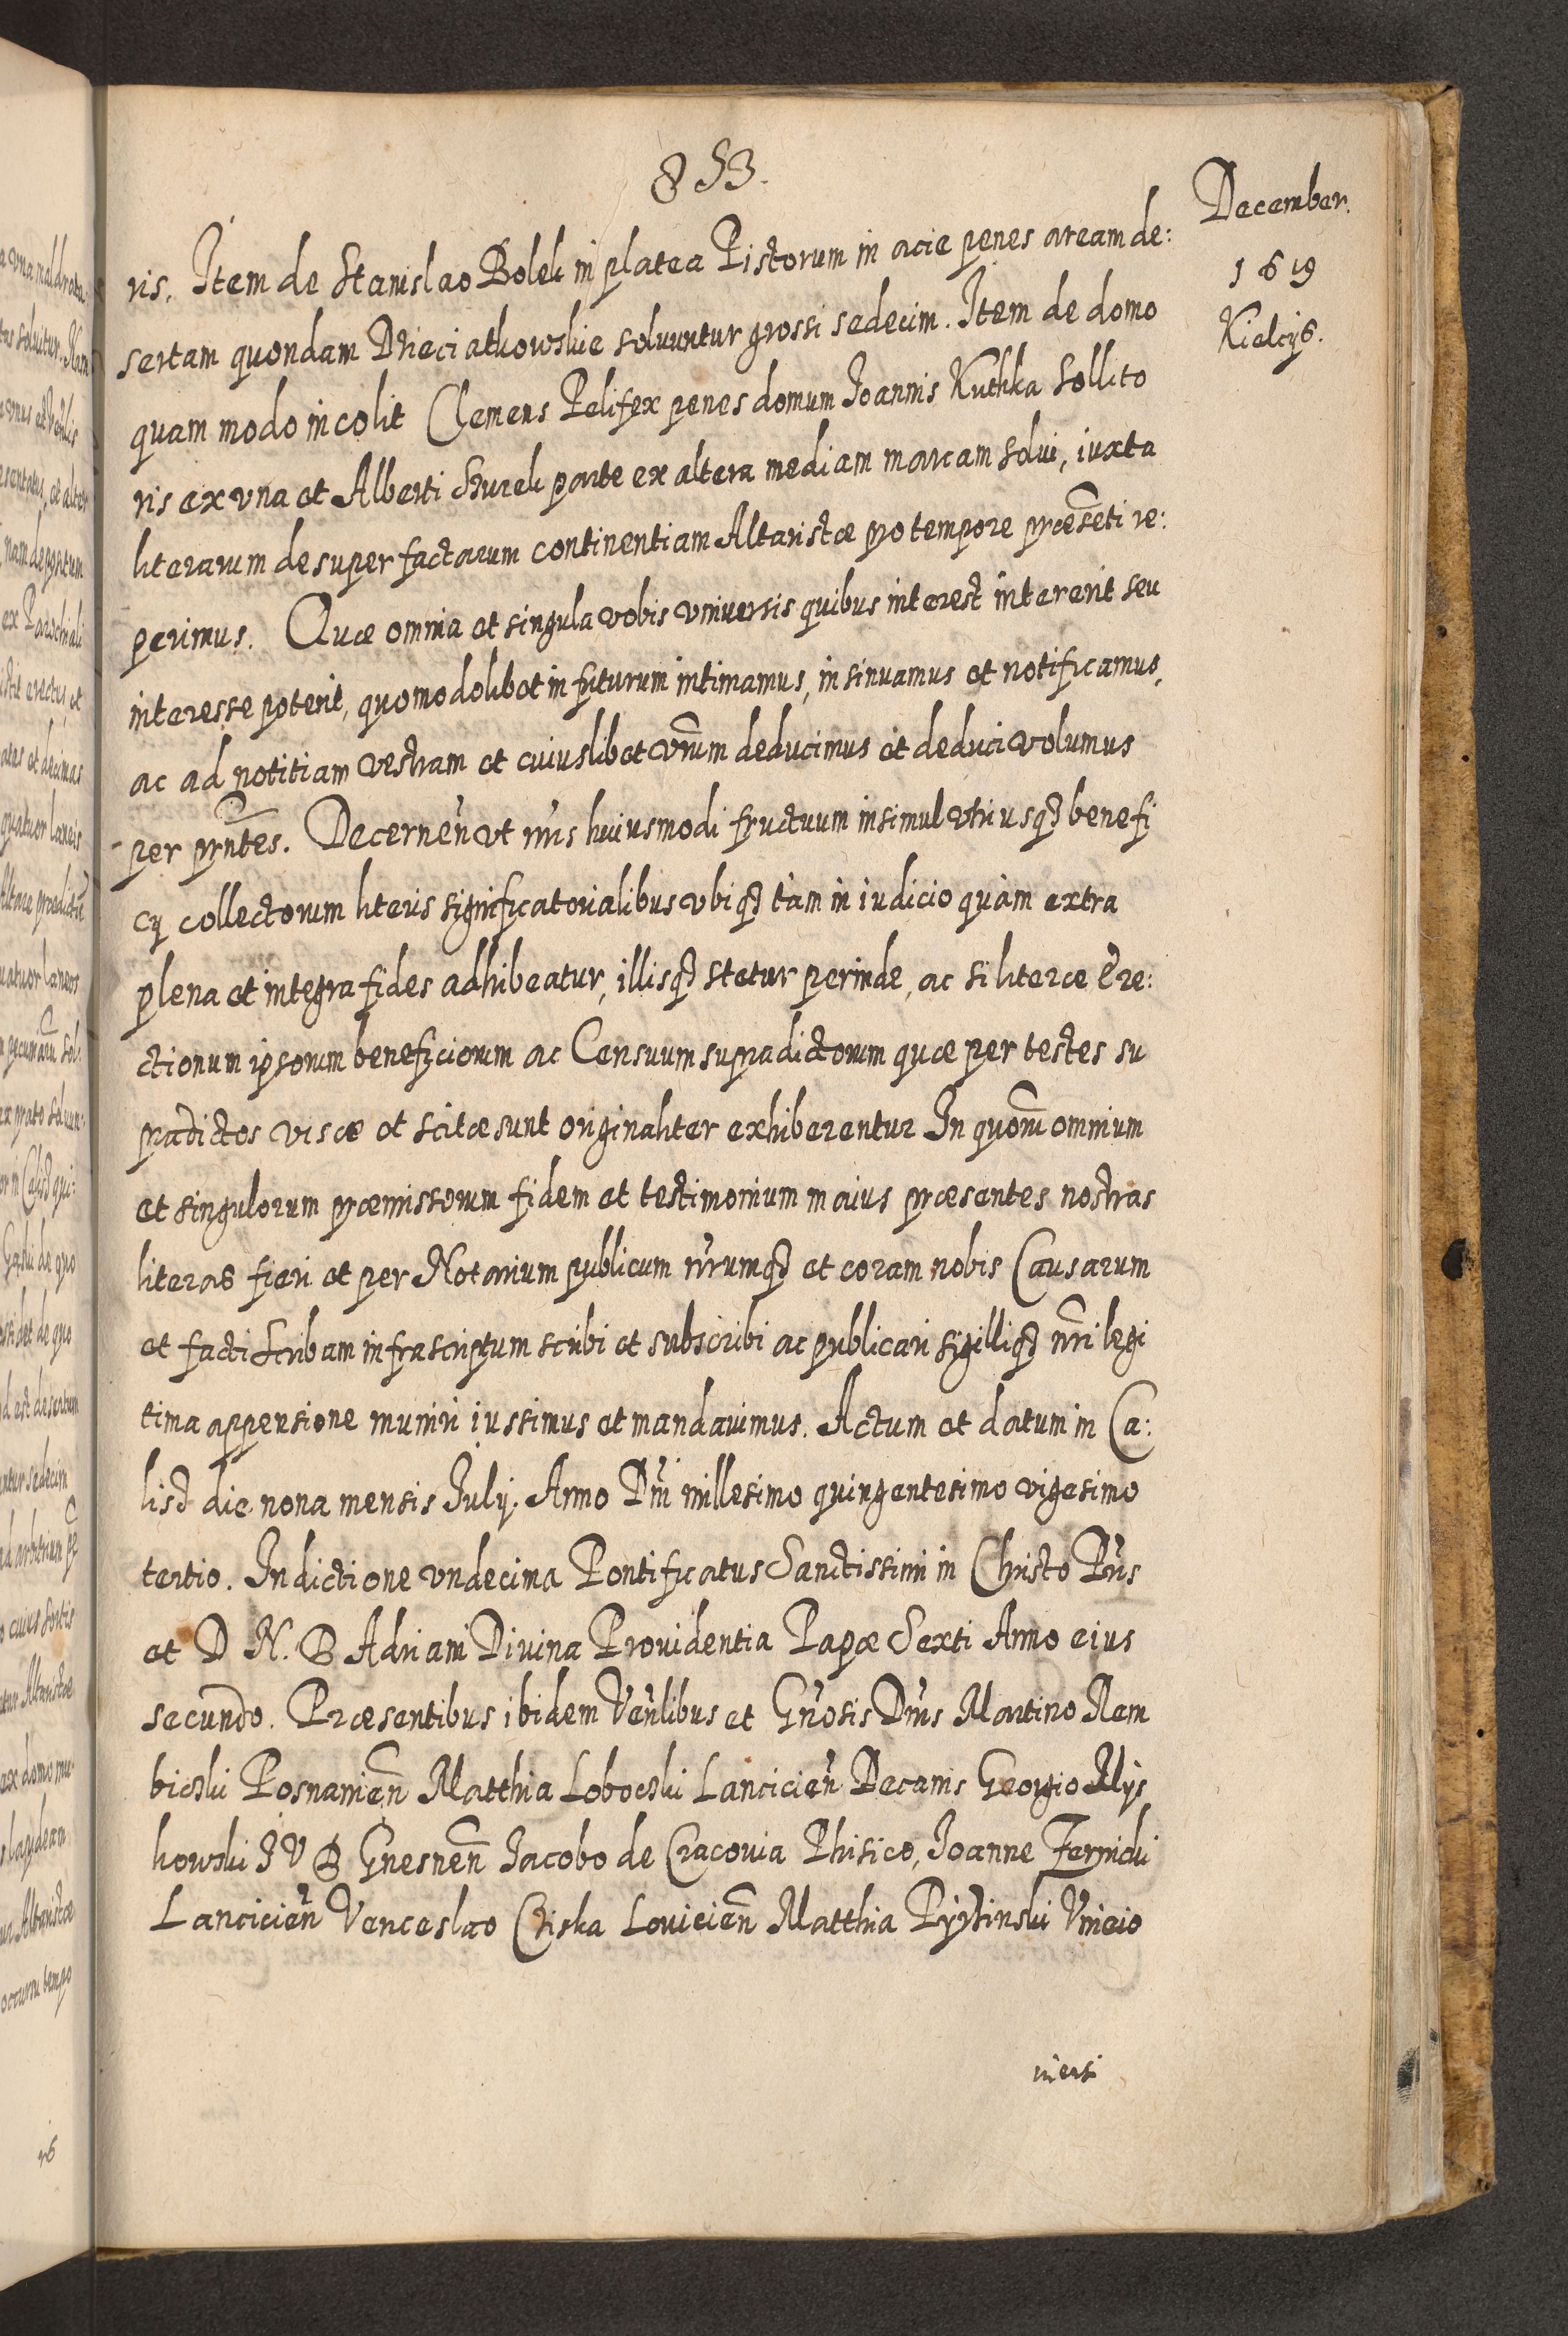 853.
December.
1619
Kielcijs.
ris. Item de Stanislao Bolek in platea Pistorum in acie penes aream de:
sertam quondam Dzieciatkowskie solvuntur grossi sedecim. Item de domo
quam modo incolit Clemens Pelifex penes domum Joannis Kuthka Sollito
ris ex vna et Alberti Szurek parte ex altera mediam marcam solui, iuxta
literarum desuper factarum continentiam Altaristæ pro tempore præsẽti re:
perimus. Quæ omnia et singula vobis vniuersis quibus interest intererit seu
interesse poterit, quomodolibet in futurum intimamus, insinuamus et notificamus,
ac ad notitiam vestram et cuiuslibet vr̃um deducimus et deduci volumus
per pr̃ntes. Decernen̄ vt nr̄is huiusmodi fructuum insimul vtriusq₃ benefi
cij collectorum literis significatorialibus vbiq₃ tàm in iudicio quàm extra
plena et integra fides adhibeatur, illisq₃ stetur perinde, ac si literæ Ere:
ctionum ipsorum beneficiorum ac Censuum supradictorum quæ per testes su
pradictos visæ et scitæ sunt originaliter exhiberentur In quor̃u omnium
et singulorum præmissorum fidem et testimonium maius præsentes nostras
literas fieri et per Notarium publicum nr̄umq₃ et coram nobis Causarum
et facti Scribam infrascriptum scribi et subscribi ac publicari sigilliq₃ nr̃i legi
tima appensione muniri iussimus et mandauimus. Actum et datum in Ca:
lis₃ die nona mensis Julij. Anno Dn̄i millesimo quingentesimo vigesimo
tertio. Indictione vndecima Pontificatus Sanctissimi in Christo Pr̄is
et D N. D Adriani Divina Prouidentia Papæ Sexti Anno eius
secundo. Præsentibus ibidem Ven̄libus et Gn̄osis Dn̄is Martino Ram
bieski Posnanien̄ Matthia Loboczki Lancicien̄ Decanis Georgio Mys
kowski J V D Gnesnen̄ Jacobo de Cracouia Phisico, Joanne
Lancicien̄ Venceslao Cziska Louicien̄ Matthia Vnieio
uiensi